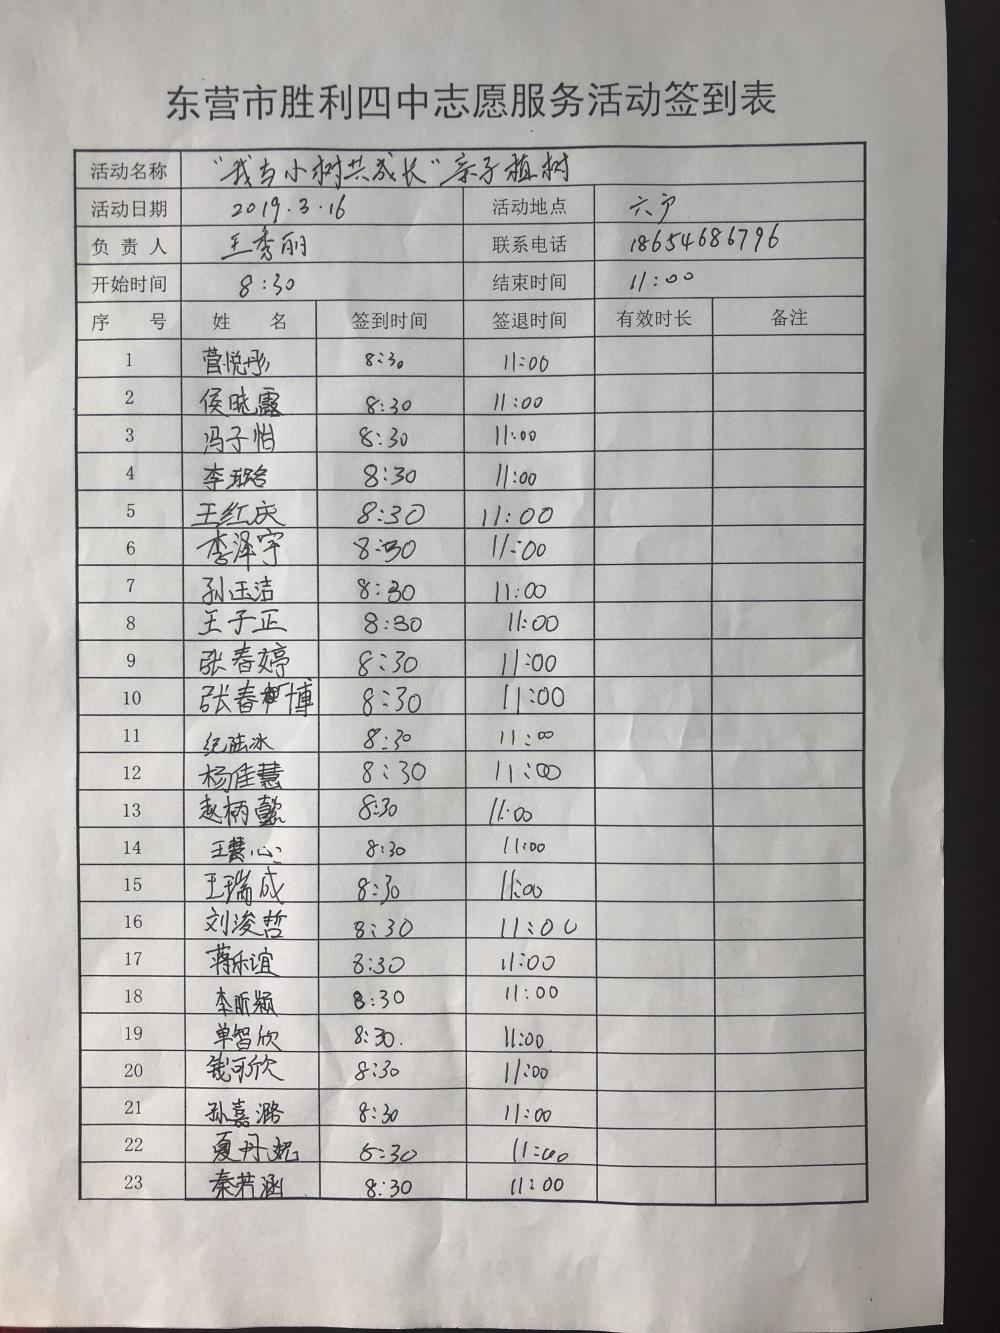 东营市胜利四中志愿服务活动签到表
活动名称 “我与小树共成长”亲子植树
活动日期 2019.3.16 活动地点 六户
负责人 王秀丽 联系电话 18654686796
开始时间 8:30 结束时间 11:00
序号 姓名 签到时间 签退时间 有效时长 备注
1 菅悦彤 8:30 11:00
2 侯晓露 8:30 11:00
3 冯子怡 8:30 11:00
4 李璐 8:30 11:00
5 王红庆 8:30 11:00
6 李泽宇 8:30 11:00
7 孙玉洁 8:30 11:00
8 王子正 8:30 11:00
9 张春婷 8:30 11:00
10 张春博 8:30 11:00
11 纪陆冰 8:30 11:00
12 杨佳慧 8:30 11:00
13 赵柄懿 8:30 11:00
14 王慧心 8:30 11:00
15 王瑞成 8:30 11:00
16 刘浚哲 8:30 11:00
17 蒋乐谊 8:30 11:00
18 李昕颖 8:30 11:00
19 单智欣 8:30. 11:00
20 钱可欣 8:30 11:00
21 孙嘉潞 8:30 11:00
22 夏丹妮 8:30 11:00
23 秦若涵 8:30 11:00